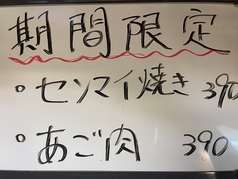 期間限定
○センマイ焼き 390
○あご肉 390